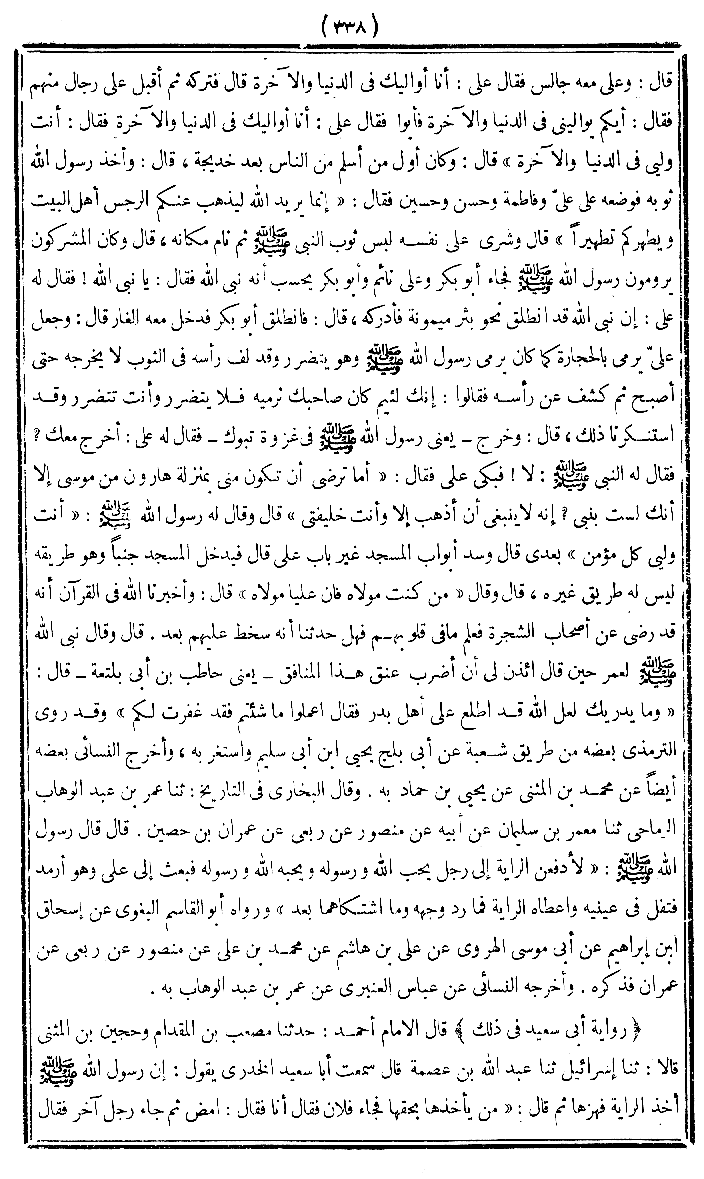 ( ٣٣٨ )
قال : وعلى معه جالس فقال على : أنا أواليك فى الدنيا والآخرة قال فتركه ثم أقبل على رجال منهم
فقال : أيكم يوالينى فى الدنيا والآخرة فأبوا فقال على : أنا أواليك فى الدنيا والآخرة فقال : أنت
وليى فى الدنيا والآخرة » قال : وكان أول من أسلم من الناس بعد خديجة ، قال : وأخذ رسول الله
ثوبه فوضعه على علىّ وفاطمة وحسن وحسين فقال : « إنما يريد الله ليذهب عنكم الرجس أهل البيت
ويطهركم تطهيراً » قال وشرى على نفسه لبس ثوب النبى ﷺ ثم نام مكانه ، قال وكان المشركون
يرومون رسول الله ﷺ فجاء أبو بكر وعلى نائم وأبو بكر يحسب أنه نبى الله فقال : يا نبى الله ! فقال له
على : إن نبى الله قد انطلق نحو بئر ميمونة فأدركه ، قال : فانطلق أبو بكر فدخل معه الغار قال : وجعل
علىّ يرمى بالحجارة كما كان يرمى رسول الله ﷺ وهو يتضرر وقد لف رأسه فى الثوب لا يخرجه حتى
أصبح ثم كشف عن رأسه فقالوا : إنك لئيم كان صاحبك نرميه فلا يتضرر وأنت تتضرر وقد
استنكرنا ذلك ، قال : وخرج ـ يعنى رسول الله ﷺ فى غزوة تبوك ـ فقال له على : أخرج معك ?
فقال له النبى ﷺ : لا ! فبكى على فقال : « أما ترضى أن تكون منى بمنزلة هارون من موسى إلا
أنك لست بنبى ? إنه لا ينبغى أن أذهب إلا وأنت خليفتى » قال وقال له رسول الله ﷺ : « أنت
ولى كل مؤمن » بعدى قال وسد أبواب المسجد غير باب على قال فيدخل المسجد جنباً وهو طريقه
ليس له طريق غيره ، قال وقال « من كنت مولاه فان عليا مولاه » قال : وأخبرنا الله فى القرآن أنه
قد رضى عن أصحاب الشجرة فعلم مافى قلوبهم فهل حدثنا أنه سخط عليهم بعد . قال وقال نبى الله
ﷺ لعمر حين قال ائذن لى أن أضرب عنق هذا المنافق ـ يعنى حاطب بن أبى بلتعة ـ قال :
« وما يدريك لعل الله قد اطلع على أهل بدر فقال اعملوا ما شئتم فقد غفرت لكم » وقد روى
الترمذى بعضه من طريق شعبة عن أبى بلج يحيى ابن أبى سليم واستغر به ، وأخرج النسائى بعضه
أيضاً عن محمد بن المثنى عن يحيى بن حماد به . وقال البخارى فى التاريخ : ثنا عمر بن عبد الوهاب
الرماحى ثنا معمر بن سليمان عن أبيه عن منصور عن ربعى عن عمران بن حصين . قال قال رسول
الله ﷺ : « لأدفعن الراية إلى رجل يحب الله ورسوله ويحبه الله ورسوله فبعث إلى على وهو أرمد
فتفل فى عينيه واعطاه الراية فما رد وجهه وما اشتكاهما بعد » ورواه أبو القاسم البغوى عن إسحاق
ابن إبراهيم عن أبى موسى الهروى عن على بن هاشم عن محمد بن على عن منصور عن ربعى عن
عمران فذكره . وأخرجه النسائى عن عباس العنبرى عن عمر بن عبد الوهاب به .
﴿ رواية أبى سعيد فى ذلك ﴾ قال الامام أحمد : حدثنا مصعب بن المقدام وحجين بن المثنى
قالا : ثنا إسرائيل ثنا عبد الله بن عصمة قال سمعت أبا سعيد الخدرى يقول : إن رسول الله ﷺ
أخذ الراية فهزها ثم قال : « من يأخذها بحقها فجاء فلان فقال أنا فقال : امض ثم جاء رجل آخر فقال